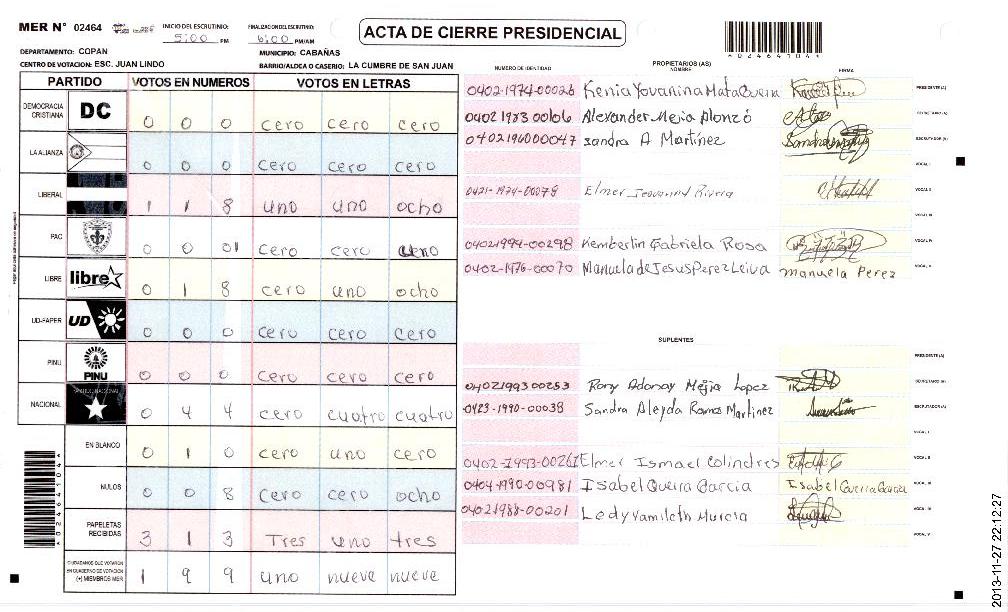 MER N° 02464
INICIO DEL ESCRUTINIO: 5:00 PM
FINALIZACION DEL ESCRUTINIO: 6:00 PM/AM
ACTA DE CIERRE PRESIDENCIAL
DEPARTAMENTO: COPAN
MUNICIPIO: CABAÑAS
CENTRO DE VOTACION: ESC. JUAN LINDO
BARRIO/ALDEA O CASERIO: LA CUMBRE DE SAN JUAN
PARTIDO VOTOS EN NUMEROS VOTOS EN LETRAS
DEMOCRACIA CRISTIANA DC 0 0 0 cero cero cero
LA ALIANZA 0 0 0 cero cero cero
LIBERAL 1 1 8 uno uno ocho
PAC 0 0 cero cero
LIBRE libre 0 1 8 cero uno ocho
UD-FAPER UD 0 0 0 cero cero cero
PINU PINU 0 0 0 cero cero cero
NACIONAL 0 4 4 cero cuatro cuatro
EN BLANCO 0 1 0 cero uno cero
NULOS 0 0 8 cero cero ocho
PAPELETAS RECIBIDAS 3 1 3 Tres uno tres
CIUDADANOS QUE VOTARON EN CUADERNO DE VOTACION (+) MIEMBROS MER 1 9 9 uno nueve nueve
*02464104*
NUMERO DE IDENTIDAD
PROPIETARIOS (AS)
NOMBRE
FIRMA
0402-1974-00026 Kenia Yovanina Mata PRESIDENTE (A)
0402 1983 00166 Alexander Mejia Alonzó SECRETARIO (A)
0402196000047 Sandra A Martínez ESCRUTADOR (A)
VOCAL I
0421-1974-00078 Elmer Jeovanny Rivera VOCAL II
VOCAL III
04021994-00298 Kemberlin Gabriela Rosa VOCAL IV
0402-1976-00070 Manuela de Jesus Perez Leiva manuela Perez VOCAL V
SUPLENTES
PRESIDENTE (A)
0402199300253 Rony Adonay Mejia Lopez SECRETARIO (A)
0423-1990-00038 Sandra Aleyda Ramos Martinez ESCRUTADOR (A)
VOCAL I
0402-1993-00261 Elmer Ismael Colindres VOCAL II
0404-1990-00981 Isabel Guerra Garcia Isabel Guerra Garcia VOCAL III
04021988-00201 Ledy Yamileth Murcia
VOCAL V
*02464104*
2013-11-27 22:12:27